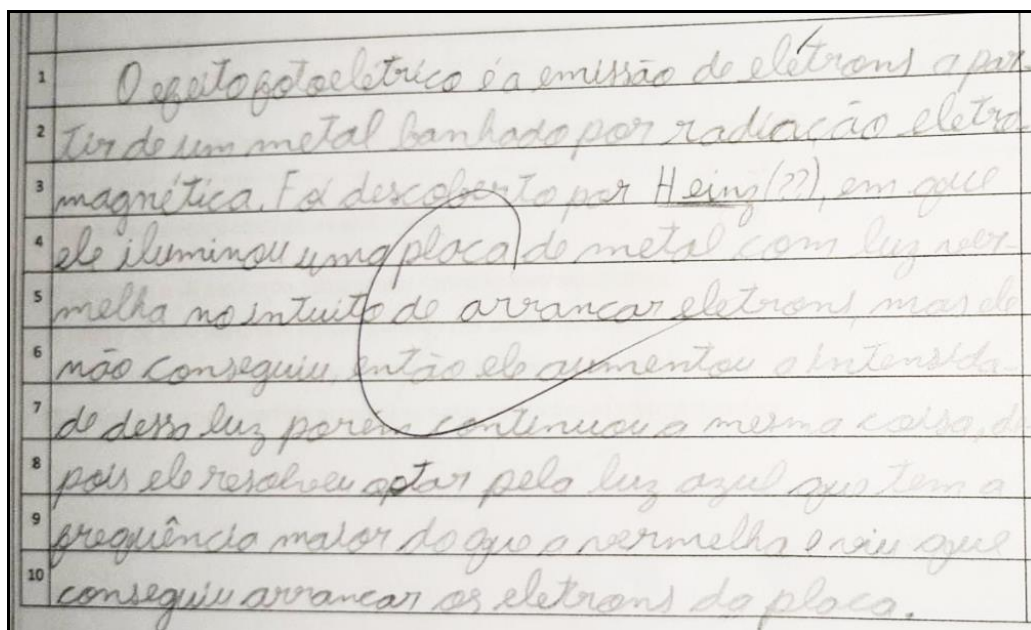 1 O efeito fotoelétrico é a emissão de elétrons a par-
2 tir de um metal banhado por radiação eletro
3 magnética. Foi descoberto por Heinz(??), em que
4 ele iluminou uma placa de metal com luz ver-
5 melha no intuito de arrancar eletrons, mas ele
6 não conseguiu, então ele aumentou a intensida-
7 de dessa luz porém continuou a mesma coisa, de
8 pois ele resolveu optar pela luz azul que tem a
9 frequência maior do que a vermelha e viu que
10 conseguiu arrancar os eletrons da placa.